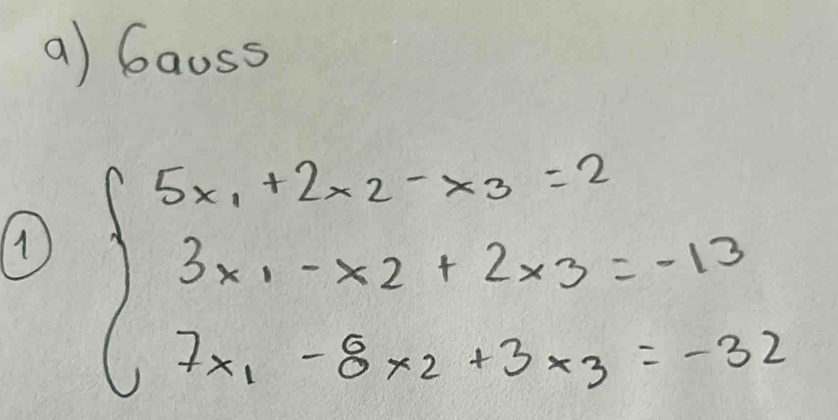 a) Gauss
5x₁ + 2x2 - x3 = 2
① 3x₁ - x2 + 2x3 = -13
7x₁ - 8x2 + 3x3 = -32